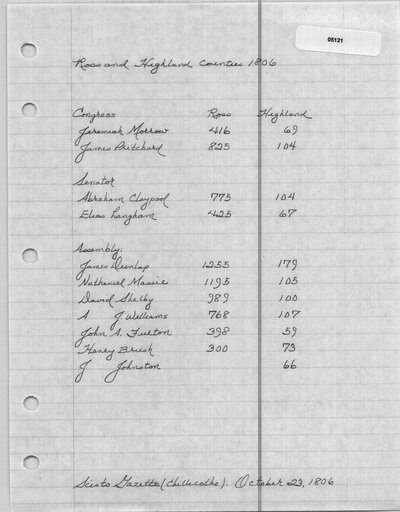 05121
Ross and Highland Counties 1806
Congress Ross Highland
Jeremiah Morrow 416 69
James Pritchard 825 104
Senator
Abraham Claypool 775 104
Elias Langham 425 67
Assembly
James Dunlap 1255 179
Nathaniel Massie 1195 105
David Shelby 989 100
A J Williams 768 107
John A. Fulton 398 59
Henry Brush 300 73
J Johnston 66
Scioto Gazette (Chillicothe). October 23, 1806